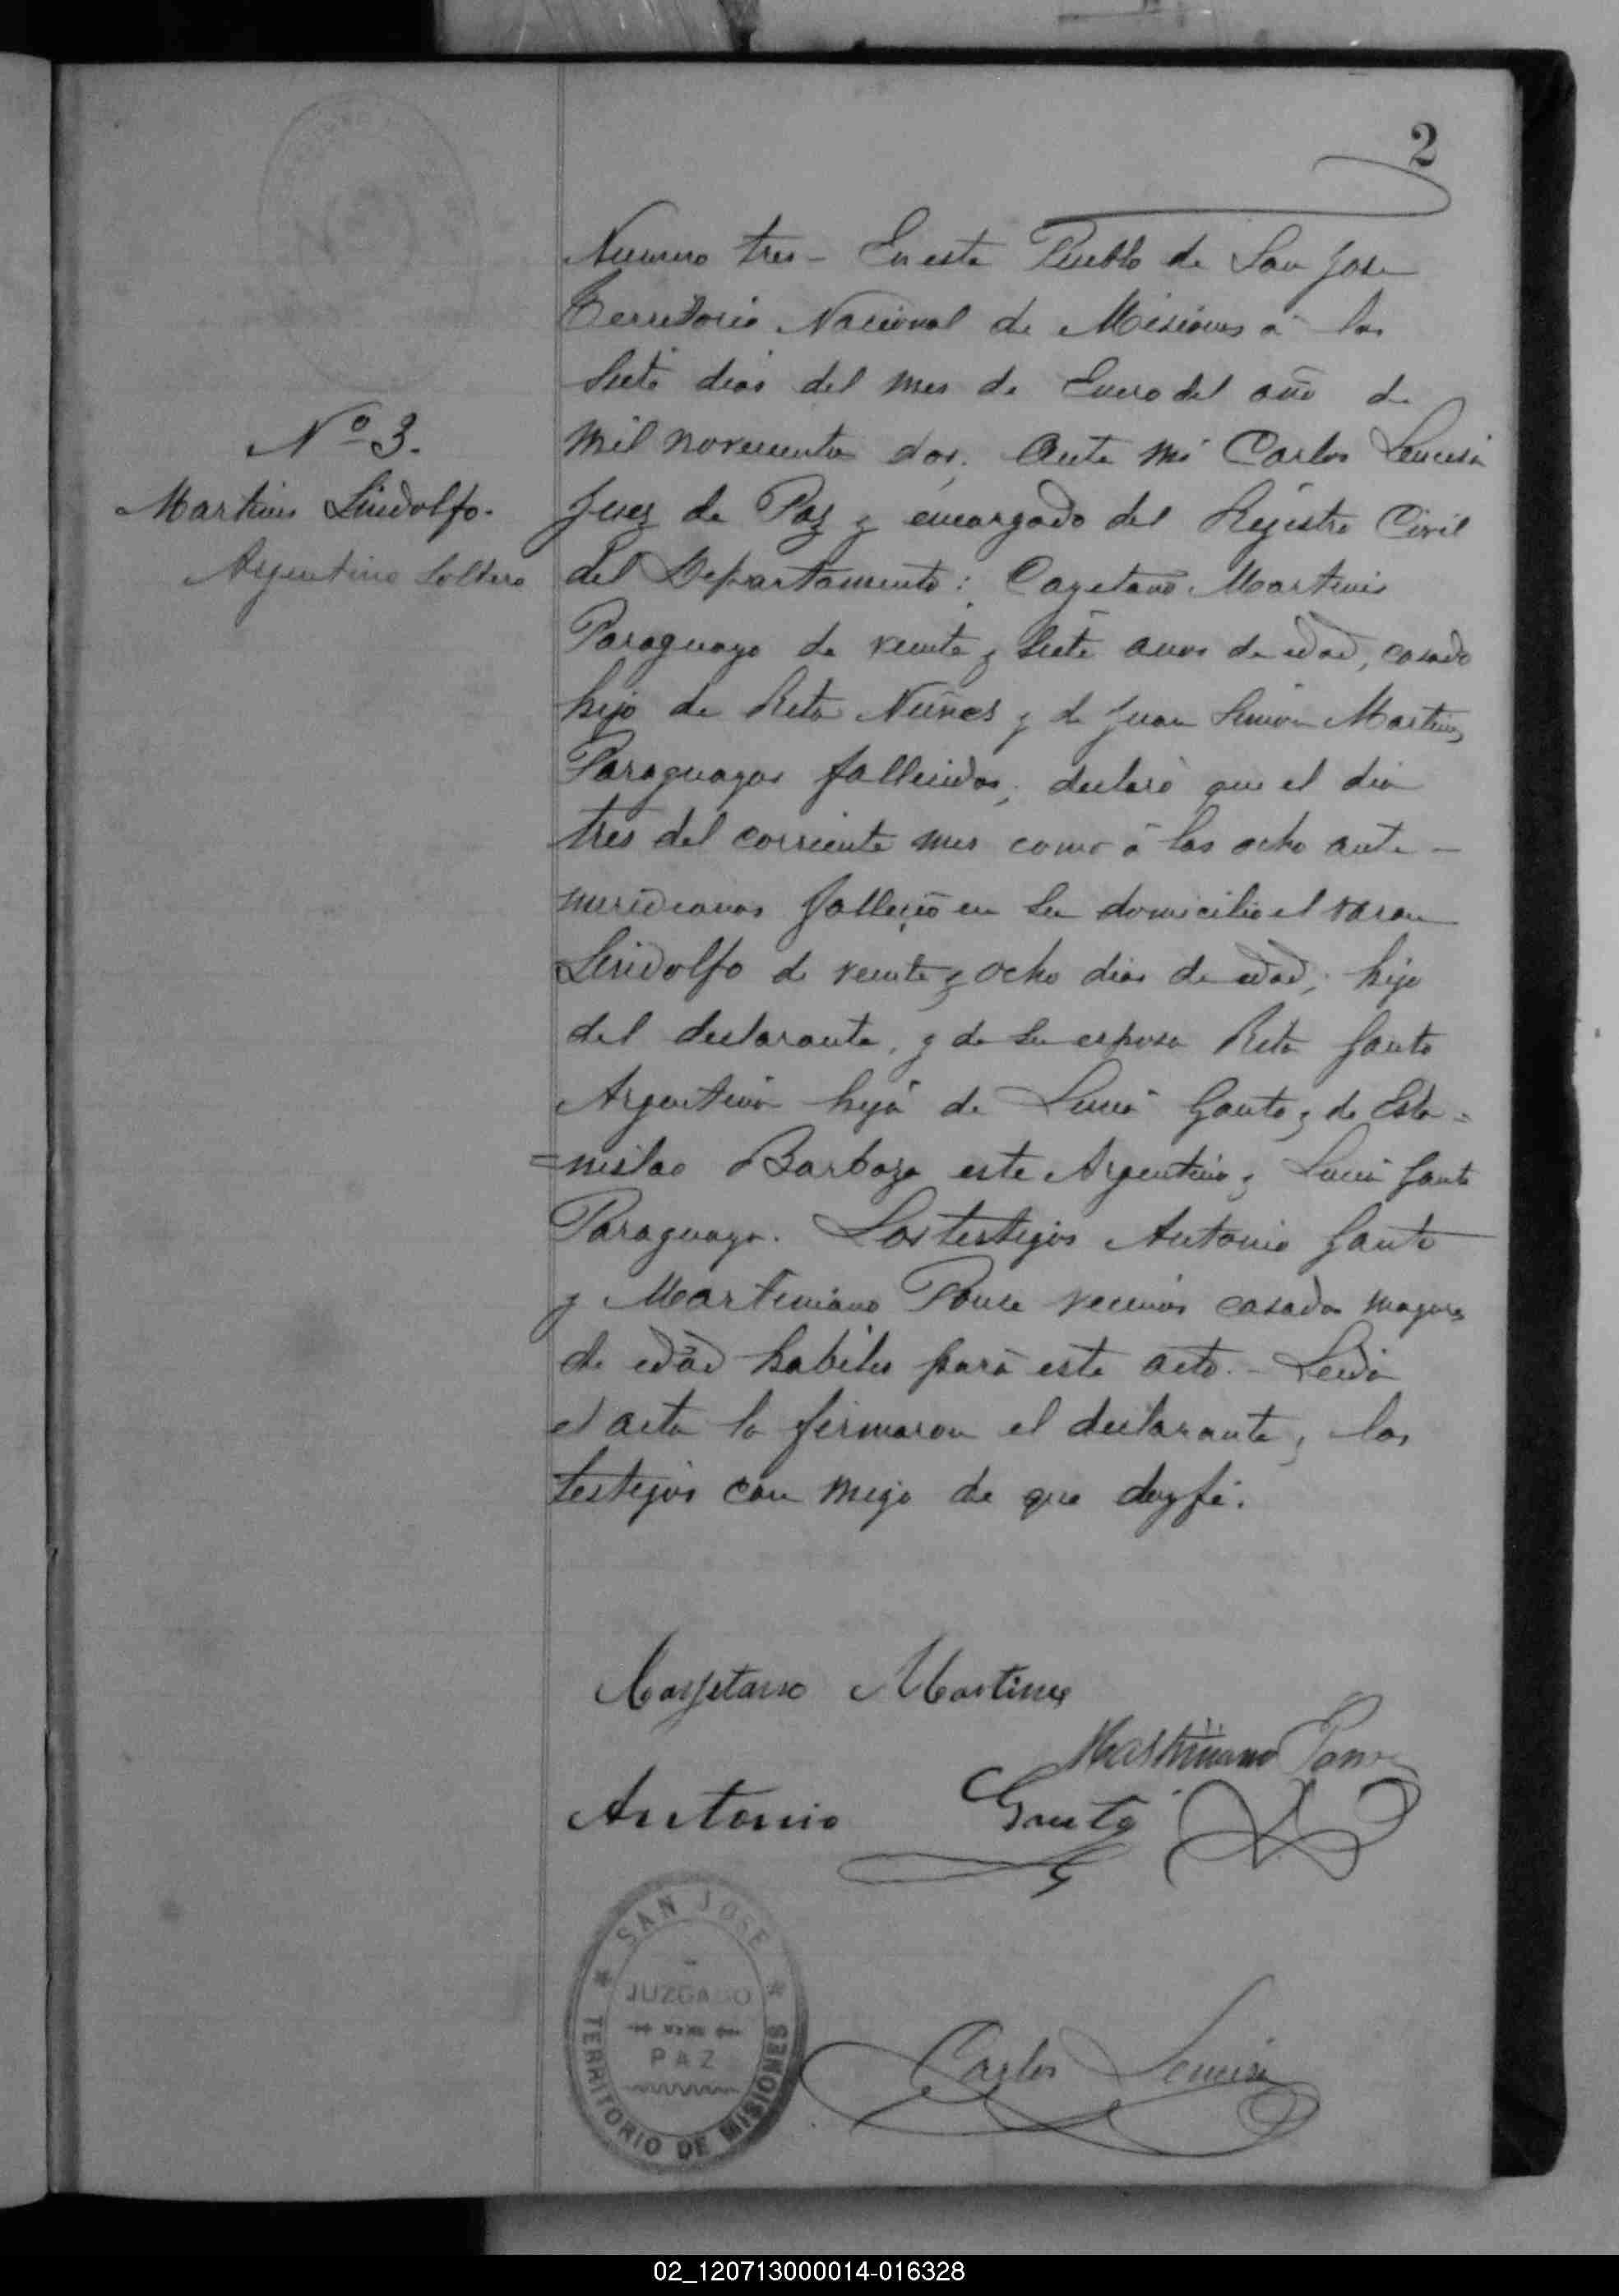 2
Numero tres - En este Pueblo de San Jose
Territorio Nacional de Misiones á los
Siete dias del mes de Enero del año de
mil novecientos dos, Ante mi Carlos
Juez de Paz y encargado del Rejistro Civil
del Departamento: Cayetano Martinis
Paraguayo de veinte y siete anos de edad, casado
hijo de Rita Nuñes y de Juan Simon Martinez
Paraguayos fallecidos; declaró que el dia
tres del corriente mes como á las ocho ante-
meridianas falleció en su domicilio el varon
Lindolfo de veinte y ocho dias de edad; hijo
del declarante, y de su esposa Rita Gauto
Argentina hija de Lucia Gauto y de Esta=
=nislao Barboza este Argentino y Lucia Gauto
Paraguaya. Los testigos Antonio Gauto
y Martiniano Ponce vecinos casados mayores
de edad habiles para este acto. - Leida
el acta la firmaron el declarante, los
testigos con migo de que doy fé.
Nº 3.
Martinis Lindolfo.
Argentino Soltero
Cayetano Martinez
Martiniano Ponce
Antonio Gauto
SAN JOSE
JUZGADO
PAZ
TERRITORIO DE MISIONES
Carlos
02_120713000014-016328